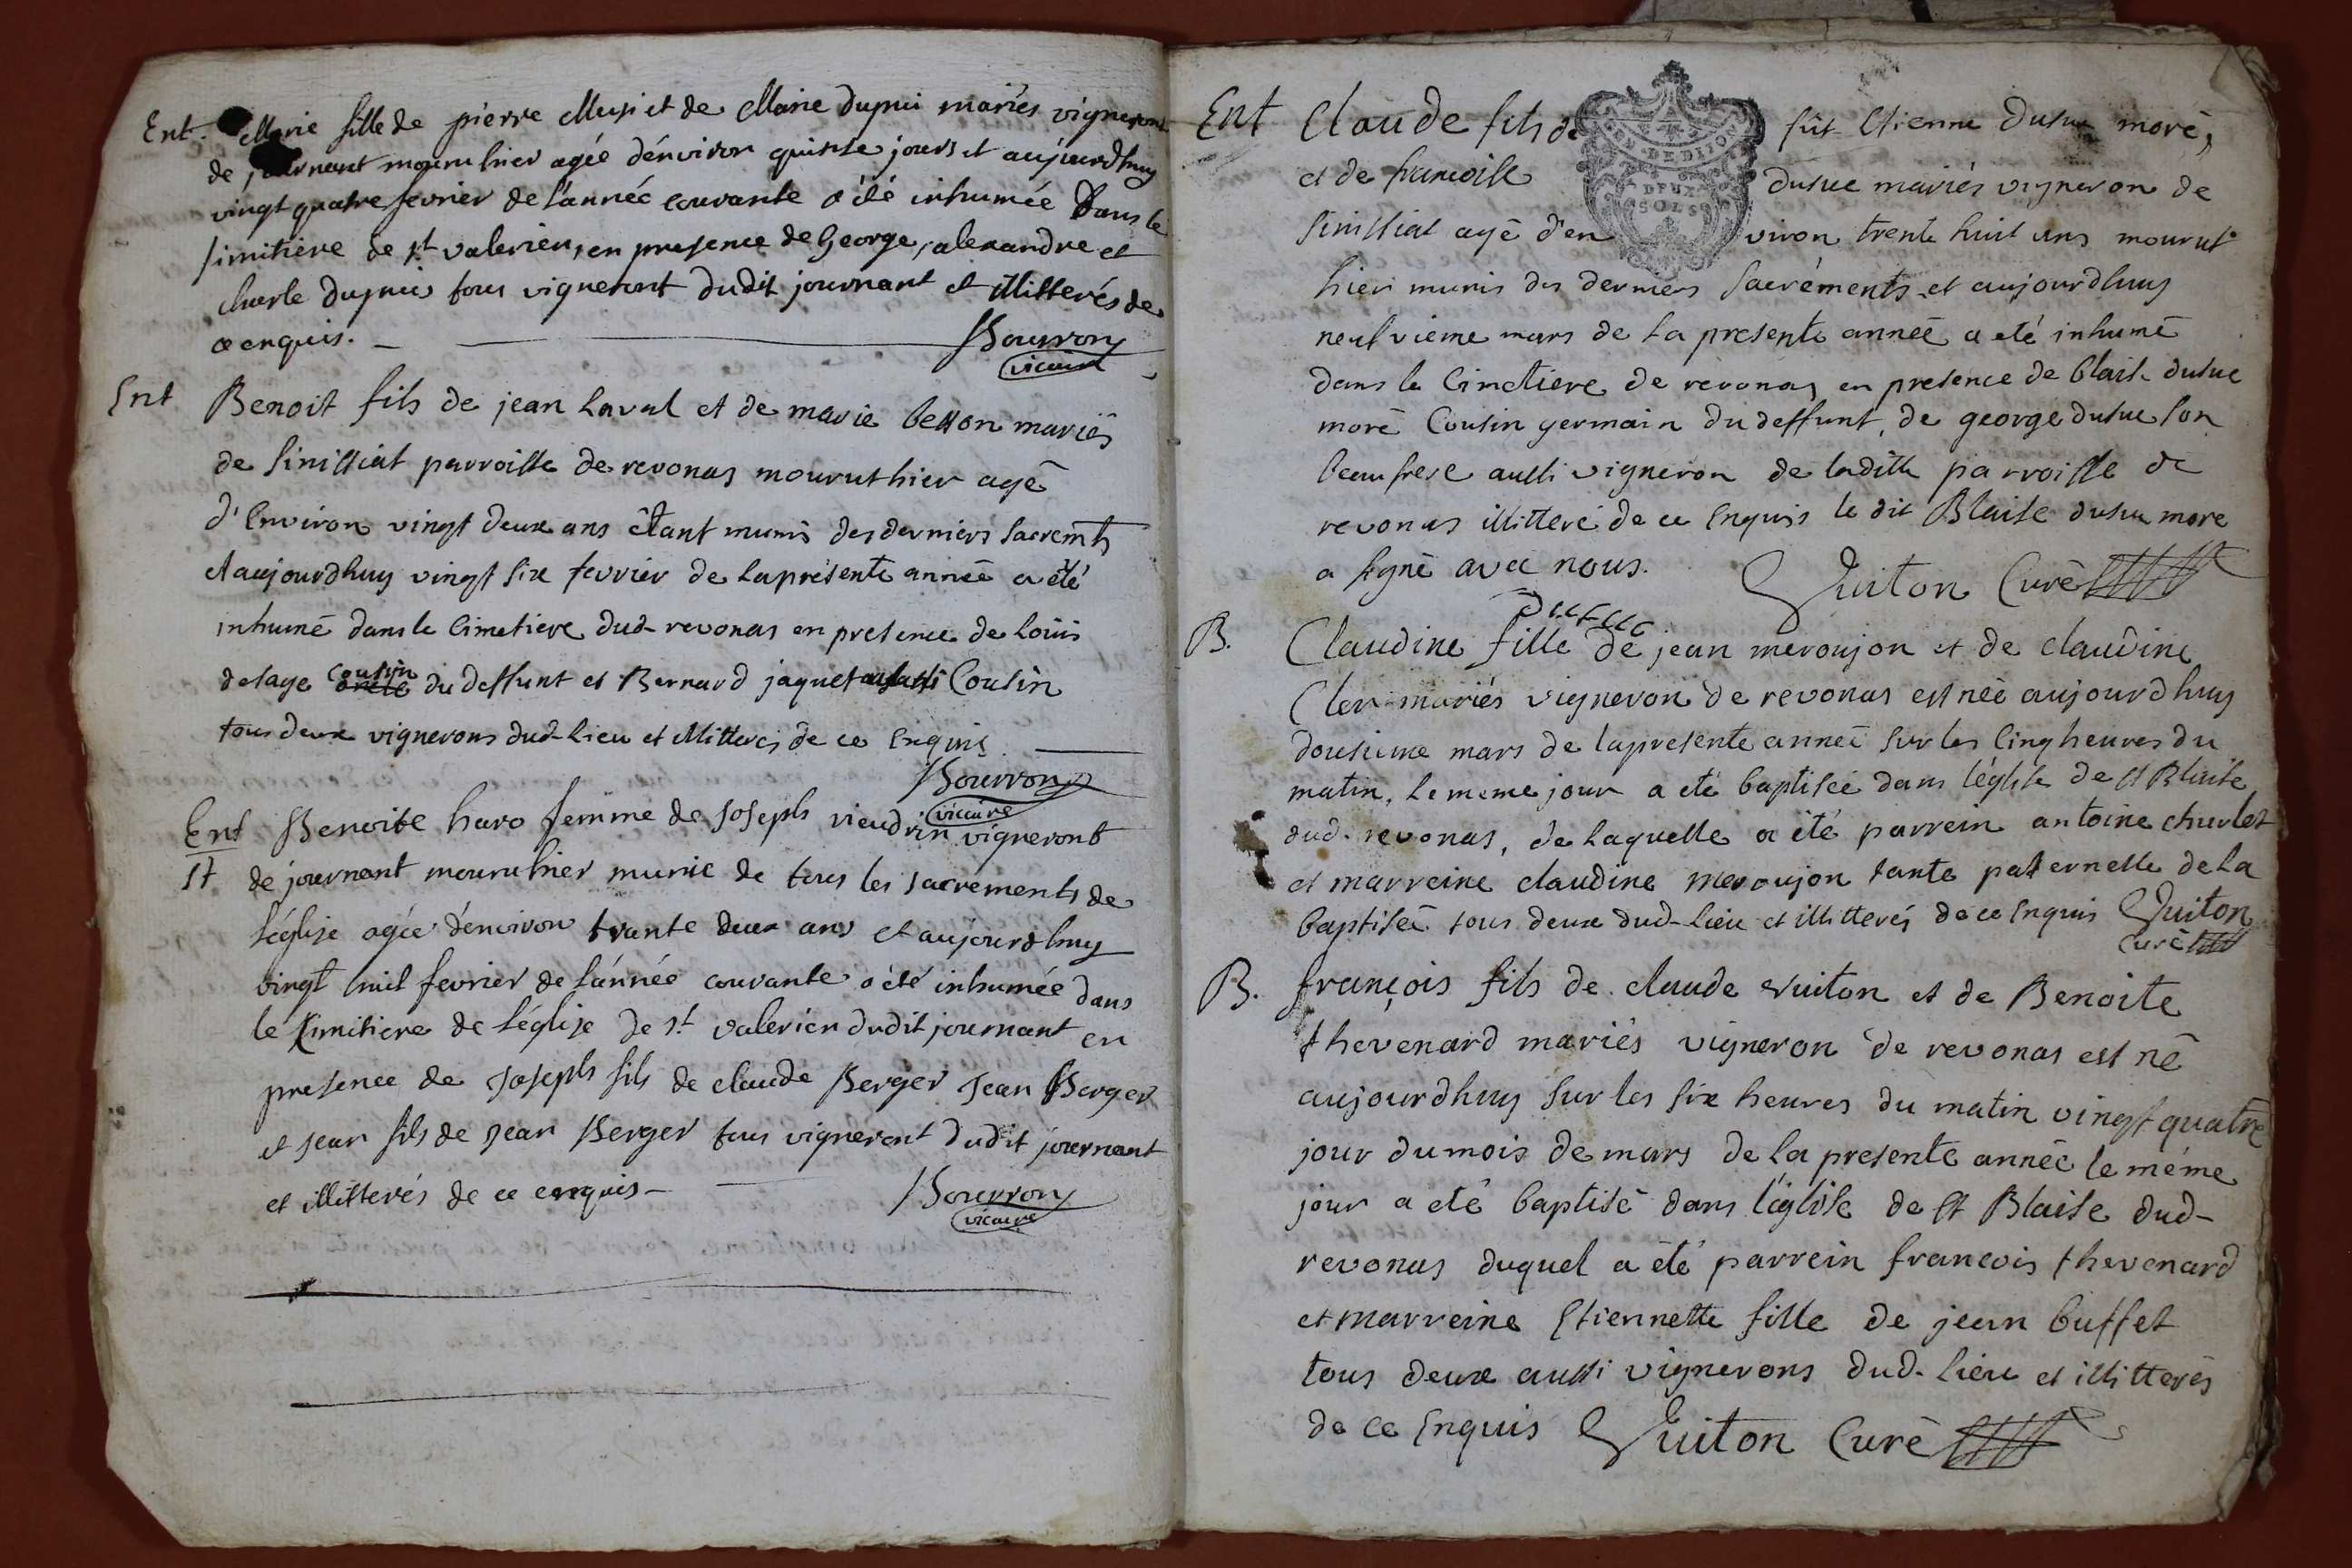 Ent. Marie fille de pierre Musi et de Marie dupui mariés vigneront
de journant mourut hier agée d'environ quinse jours et aujourdhuy
vingt quatre fevrier de l'année courante a été inhumée Dans le
simitiere de st valerien, en presence de George, alexandre et
charle dupuis tous vigneront dudit journant et illitterés de
ce enquis.
Bourron
vicaire
Ent Benoit fils de jean Laval et de marie besson mariés
de sinissiat parroisse de revonas mourut hier agé
d'Environ vingt deux ans êtant munis des derniers sacremts
et aujourdhuy vingt six fevrier de la présente année a été
inhumé dans le Cimetiere dud- revonas en presence de Loüis
delaye cousin du deffunt et Bernard jaquet aussi Cousin
tous deux vignerons dud-lieu et illitterés de ce Enquis.
Bourron
vicaire
Ent Benoite haro femme de Joseph vieudrin vigneront
st de journant mourut hier munie de tous les sacrements de
l'église agée d'environ trante deux ans et aujourdhuy
vingt huit fevrier de l'année courante a été inhumée dans
le simitiere de l'église de st. valerien dudit journant en
presence de Joseph fils de claude Berger Jean Berger
et Jean fils de Jean Berger tous vigneront dudit journant
et illitterés de ce enquis-
Bourron
vicaire
Ent Claude fils de fût Etienne Dusuc moré,
GEN. DE DIJON
DEUX
SOLS
et de francoise dusuc mariés vigneron de
sinissiat agé d'en viron trente huit ans mourut
hier munis des derniers sacréments et aujourdhuy
neufvieme mars de la presente année a eté inhumé
dans le Cimetiere de revonas en presence de blaise dusuc
moré Cousin germain du deffunt, de george dusuc son
beaufrere aussi vigneron de ladite parroisse de
revonas illitteré de ce Enquis le dit Blaise dusuc more
a signé avec nous. Guiton Curé
Dusuc
B. Claudine fille de jean meroujon et de claudine
Cler mariés vigneron de revonas est née aujourdhuy
dousieme mars de la presente année sur les Cinq heures du
matin, le meme jour a été baptisée dans l'église de st Blaise
dud- revonas, de laquelle a été parrein antoine charlet
et marreine claudine meroujon tante paternelle de la
baptisée tous deux dud-lieu et illitterés de ce Enquis Guiton
Curé
B. françois fils de claude Guiton et de Benoite
thevenard mariés vigneron de revonas est né
aujourdhuy sur les six heures du matin vingt quatre
jour du mois de mars de la presente année le méme
jour a eté baptisé dans l'église de st Blaise dud-
revonas duquel a été parrein francois thevenard
et marreine Etiennette fille de jean buffet
tous deux aussi vignerons dud- lieu et illitterés
de ce Enquis Guiton Curé